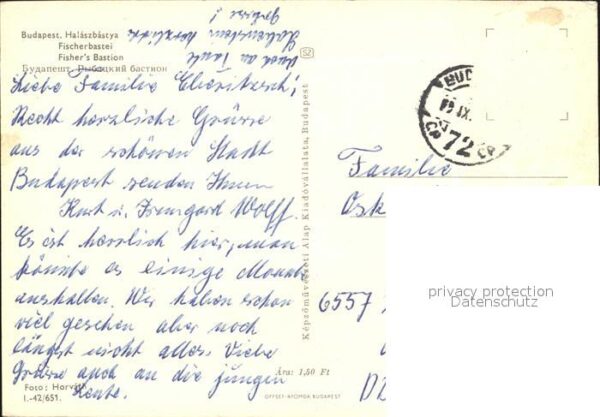 Budapest, Halászbástya
Fischerbastei
Fisher's Bastion
Будапешт. Рыбацкий бастион
Auch an Tante
herzliche
Grüsse!
Liebe Familie
Recht herzliche Grüsse
aus der schönen Stadt
Budapest senden Ihnen
Kurt u. Irmgard Wolff.
Es ist herrlich hier, man
könnte es einige Monate
aushalten. Wir haben schon
viel gesehen aber noch
längst nicht alles. Viele
Grüsse auch an die jungen
Leute.
Foto: Horváth
I.-42/651.
Ára: 1,50 Ft
OFFSET-NYOMDA BUDAPEST
Képzőművészeti Alap Kiadóvállalata, Budapest
SZ
BUD
IX.
72
Familie
Osk
6557
D
privacy protection
Datenschutz